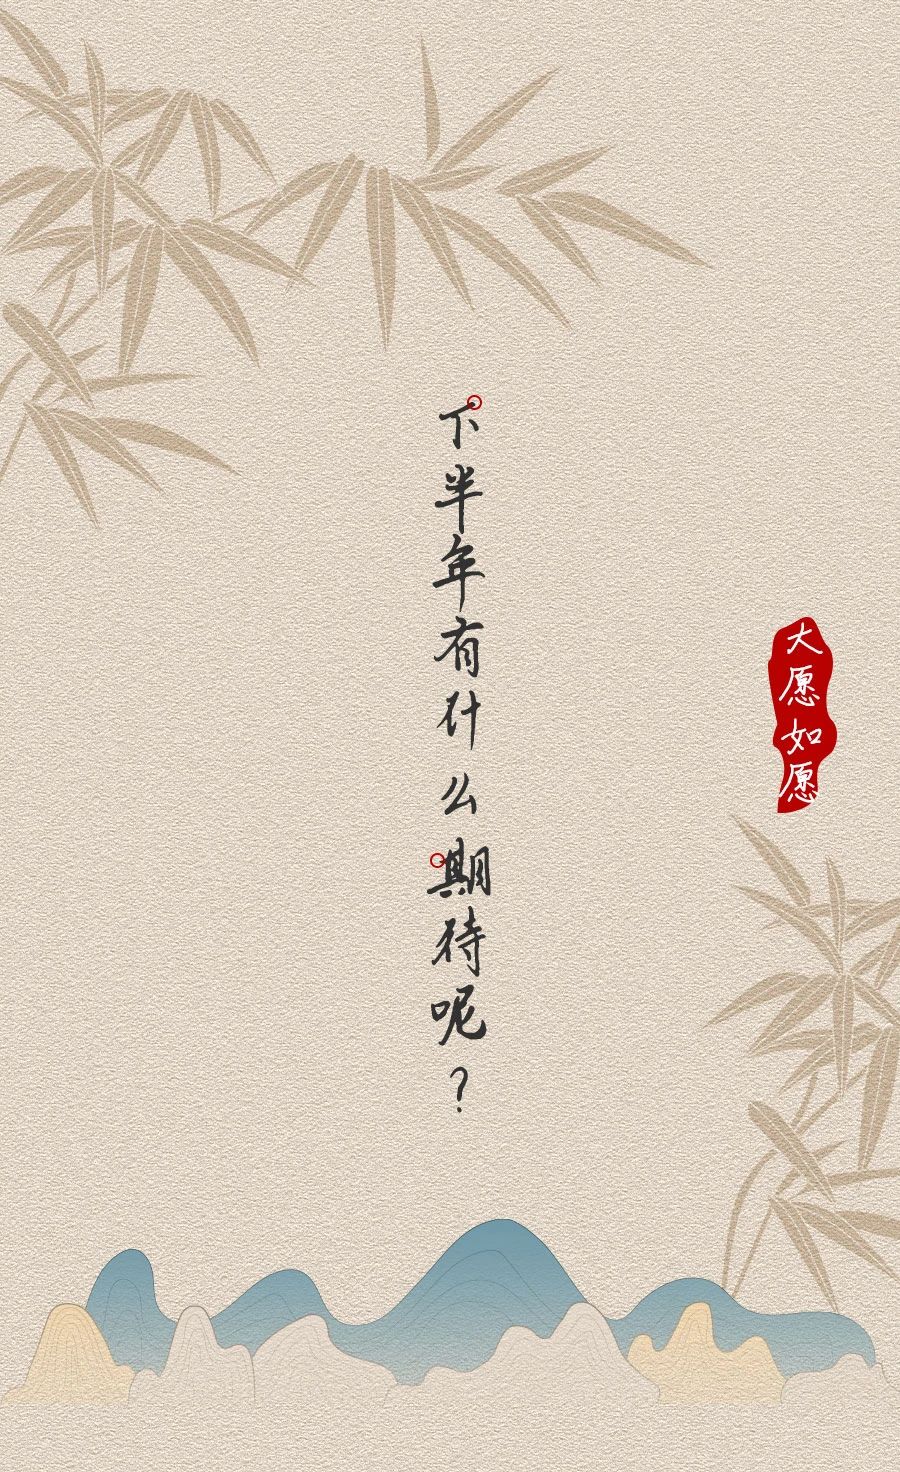 大愿如愿
下半年有什么期待呢？